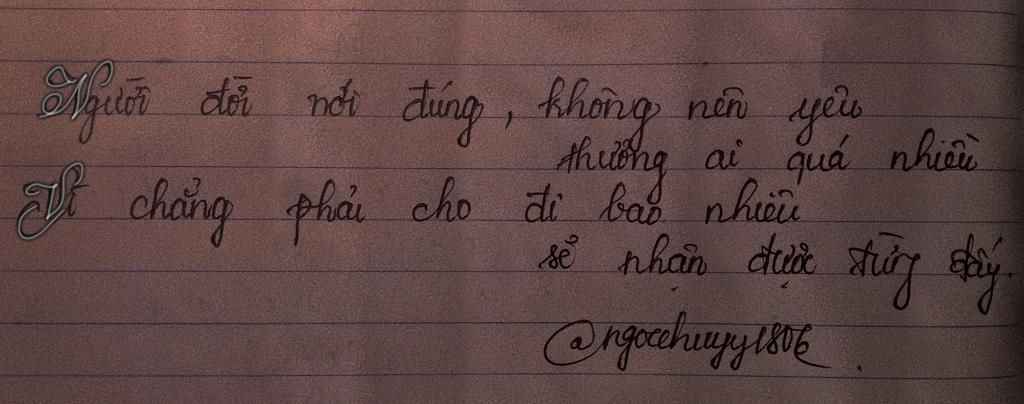 Người đời nói đúng, không nên yêu
thương ai quá nhiều
Vì chẳng phải cho đi bao nhiêu
sẽ nhận được từng đấy.
@ngocehuyy1806